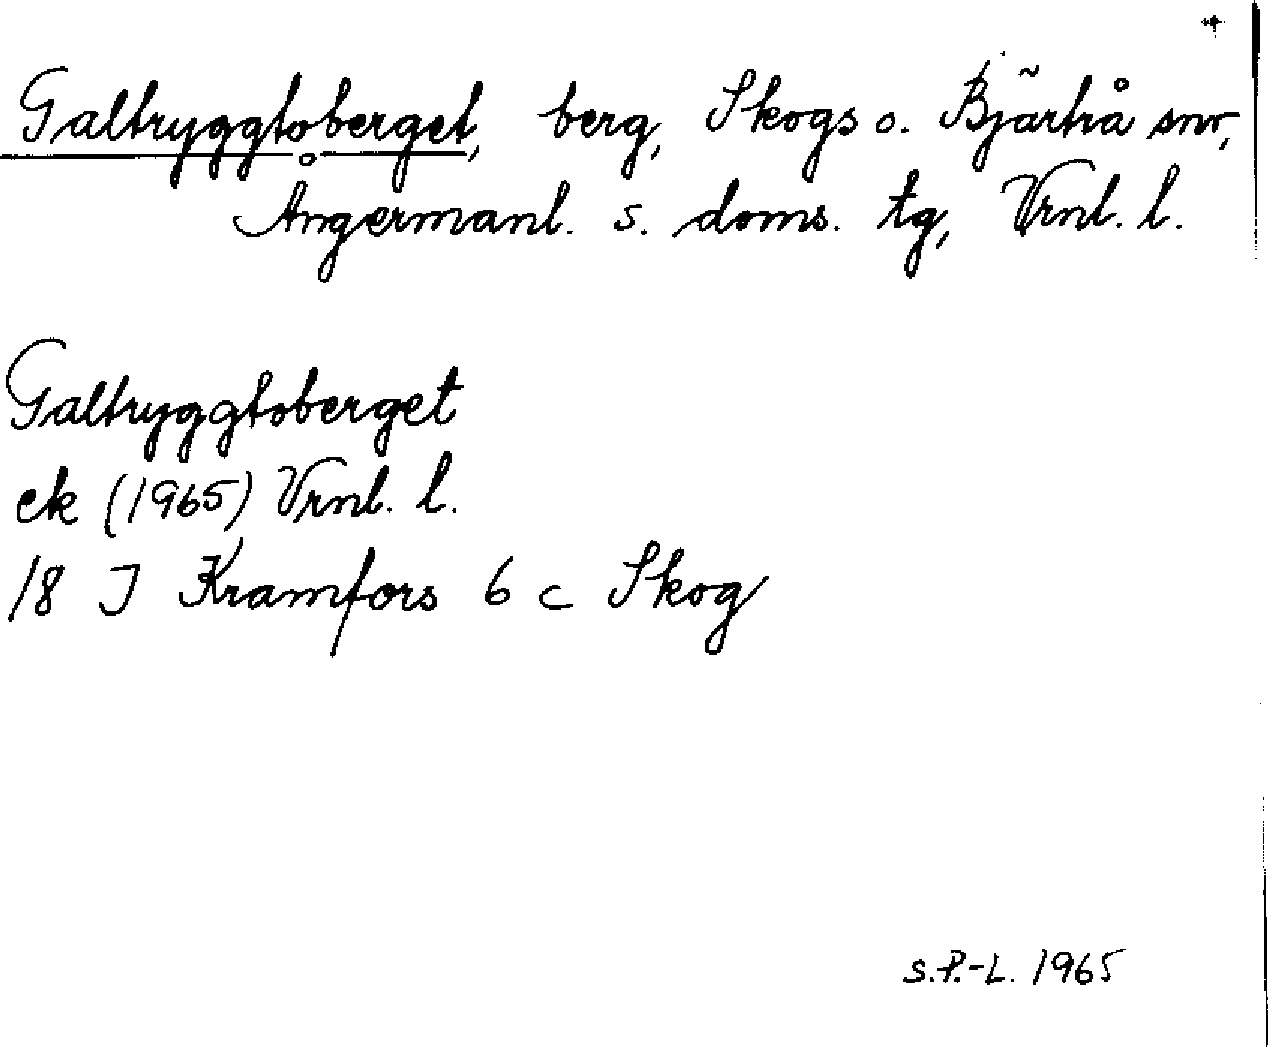 Galtryggtoberget, berg, Skogs o. Bjärtrå snr,
Ångermanl. s. doms. tg, Vrnl. l.
Galtryggtoberget
ek (1965) Vrnl. l.
18 J Kramfors 6 c Skog
S.P.-L. 1965